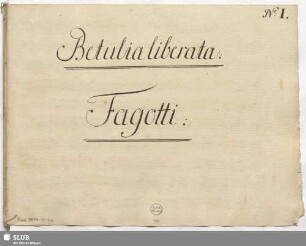 No. 1.
Betulia liberata:
Fagotti:
SLUB